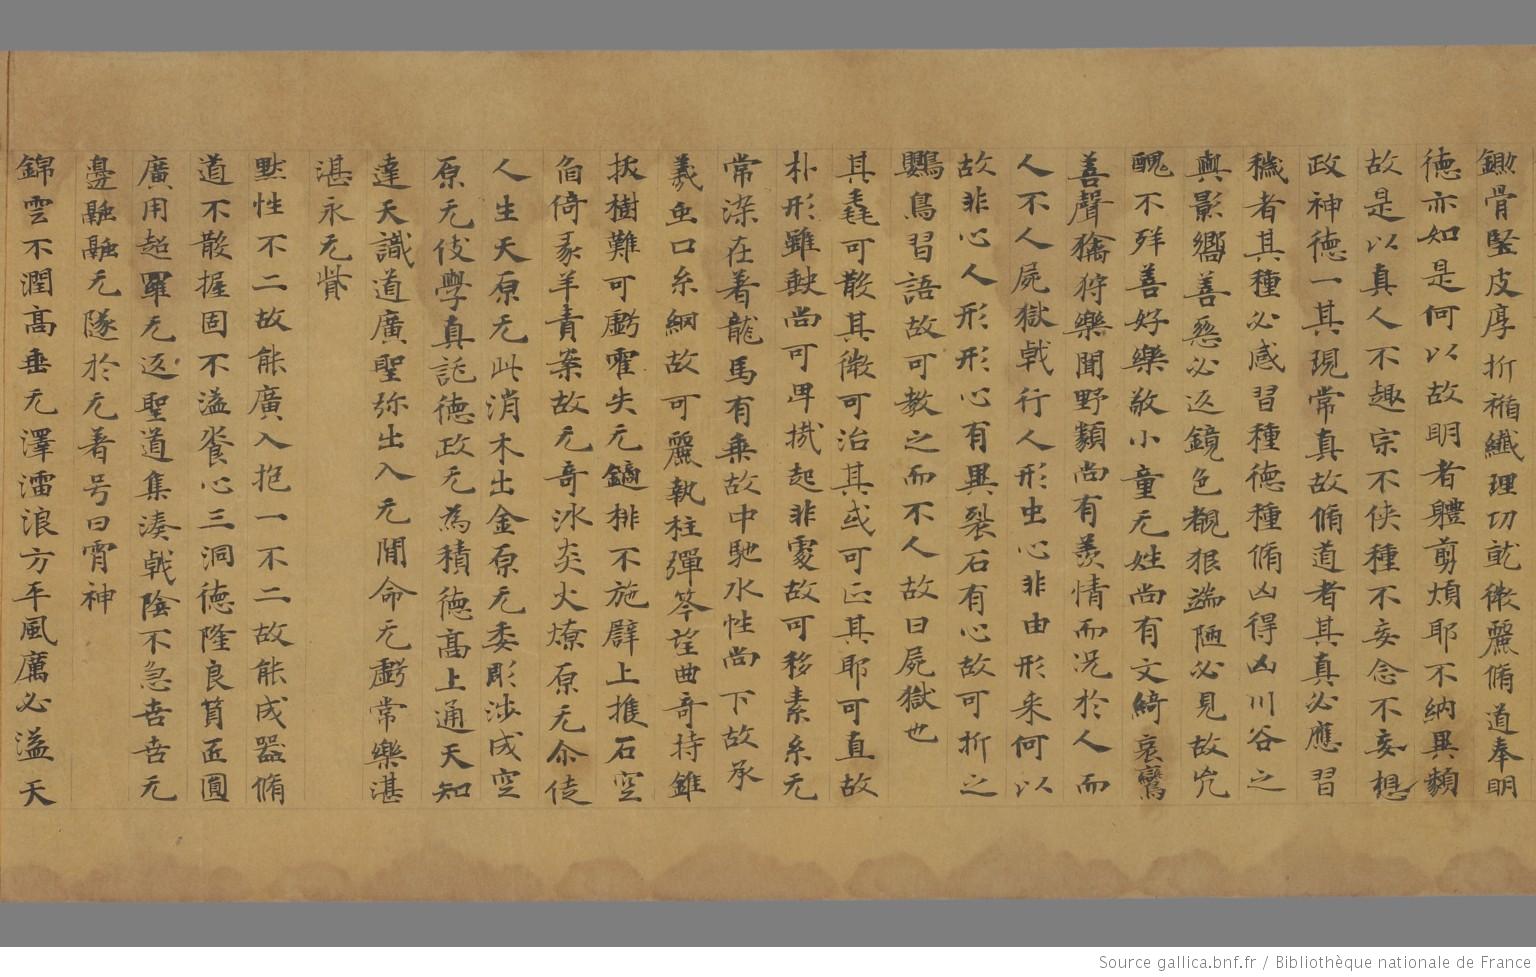 鋤骨堅皮厚折䄂纖理功乾微麗脩道奉明
德亦如是何以故明者軆剪煩耶不納異類
故是以真人不趣宗不俠種不妄念不妄想
政神德一其現常真故脩道者其真必應習
穢者其種必感習種德種脩凶得凶川谷之
與影嚮善惡必返鏡色覩狠端陋必見故㝸
醜不殍善好樂敬小童无姓尚有文綺哀鸞
善聲擒狩樂聞野類尚有羨情而况於人而
人不人屍獄戟行人形虫心非由形来何以
故非心人形形心有異裂石有心故可折之
鸚鳥習語故可教之而不人故曰屍獄也
其毳可散其微可治其或可正其耶可直故
朴形雖𡙇尚可畁撌起非䨱故可移素糸无
常染在著龍馬有乗故中馳水性尚下故承
羲𠀉口糸綱故可麗執柱彈琴䇓曲奇持錐
拔樹難可虧霍失无鏑排不施𨐨上推石空
𦣹倚豕羊責案故无奇冰炎火燎原无尒徒
人生天原无此消木出金原无委彫涉成空
原无伎學真託德政无為積德高上通天知
達天識道廣聖弥出入无閒命无虧常樂湛
湛永无㱴
㸃性不二故能廣入抱一不二故能成器脩
道不散握固不溢飬心三洞德隆良質𠥽圓
廣用超羅无返聖道集湊戟陰不急㐂㐂无
邊融融无隧於无著号曰霄神
錦雲不潤高垂无澤澑浪方平風厲必溢天
Source gallica.bnf.fr / Bibliothèque nationale de France